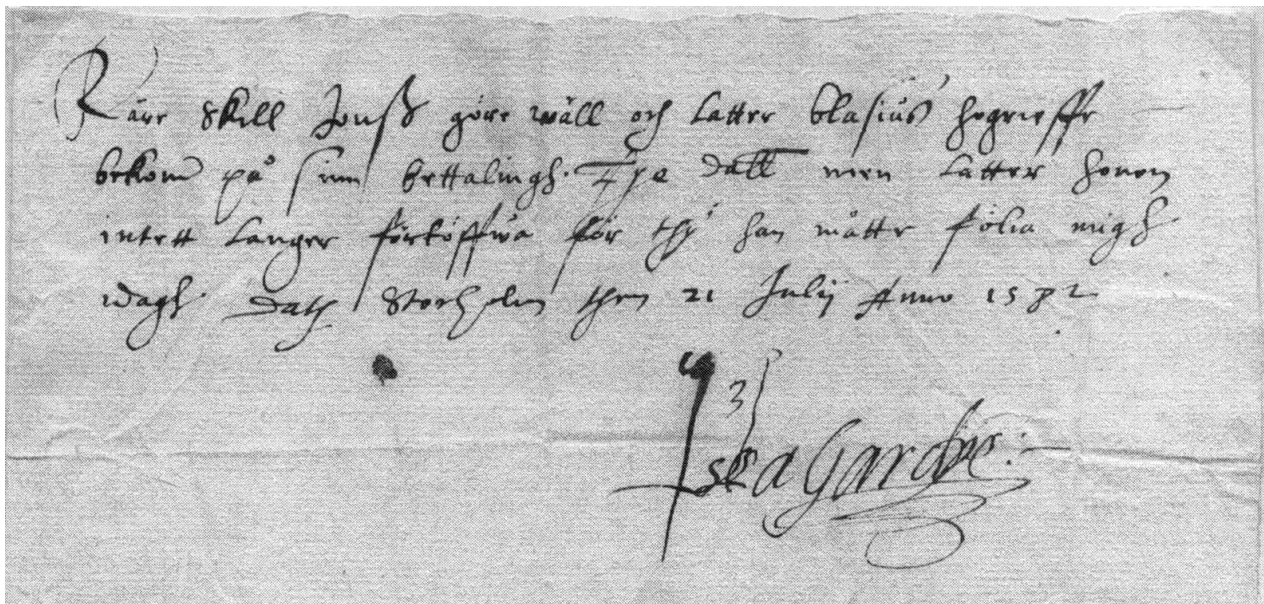 Käre Skill Jonß göre wäll och latter blasius hogreeffe
bekom på sinn bettalingh Tye dall men latter honom
intett langer förtöffwa för thÿ han måtte fölia migh
idagh Dath Stocholm then 21 Julij Anno 1582
Gardie